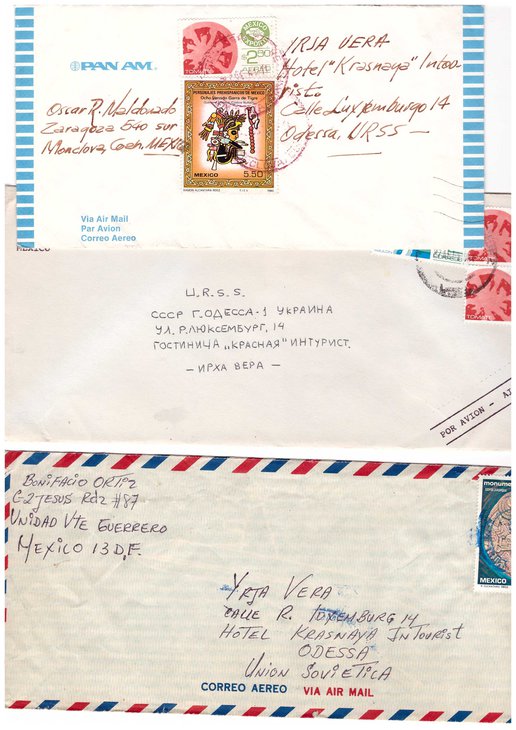 PAN AM
Oscar R. Maldonado
Zaragoza 540 sur
Monclova, Coah. MEXICO
TOMATE
MEXICO
EXPORTA
2.00
PERSONAJES PREHISPANICOS DE MEXICO
Ocho Venado Garra de Tigre
MEXICO 5.50
IRJA VERA
Hotel "Krasnaya" Intou
rista
Calle Luxjemburgo 14
Odessa, URSS
Via Air Mail
Par Avion
Correo Aereo
MEXICO
TOMATE
U.R.S.S.
СССР Г.ОДЕССА-1 УКРАИНА
УЛ.Р.ЛЮКСЕМБУРГ, 14
ГОСТИНИЦА „КРАСНАЯ" ИНТУРИСТ.
— ИРХА ВЕРА —
POR AVION - A
BONIFACIO ORTIZ
C-2 JESUS Rdz #87
UNIDAD Vte GUERRERO
MEXICO 13 D.F.
monume
MEXICO
YRJA VERA
CALLE R. LUXEMBURG 14
HOTEL KRASNAYA INTOURIST
ODESSA
UNION SOVIETICA
CORREO AEREO VIA AIR MAIL